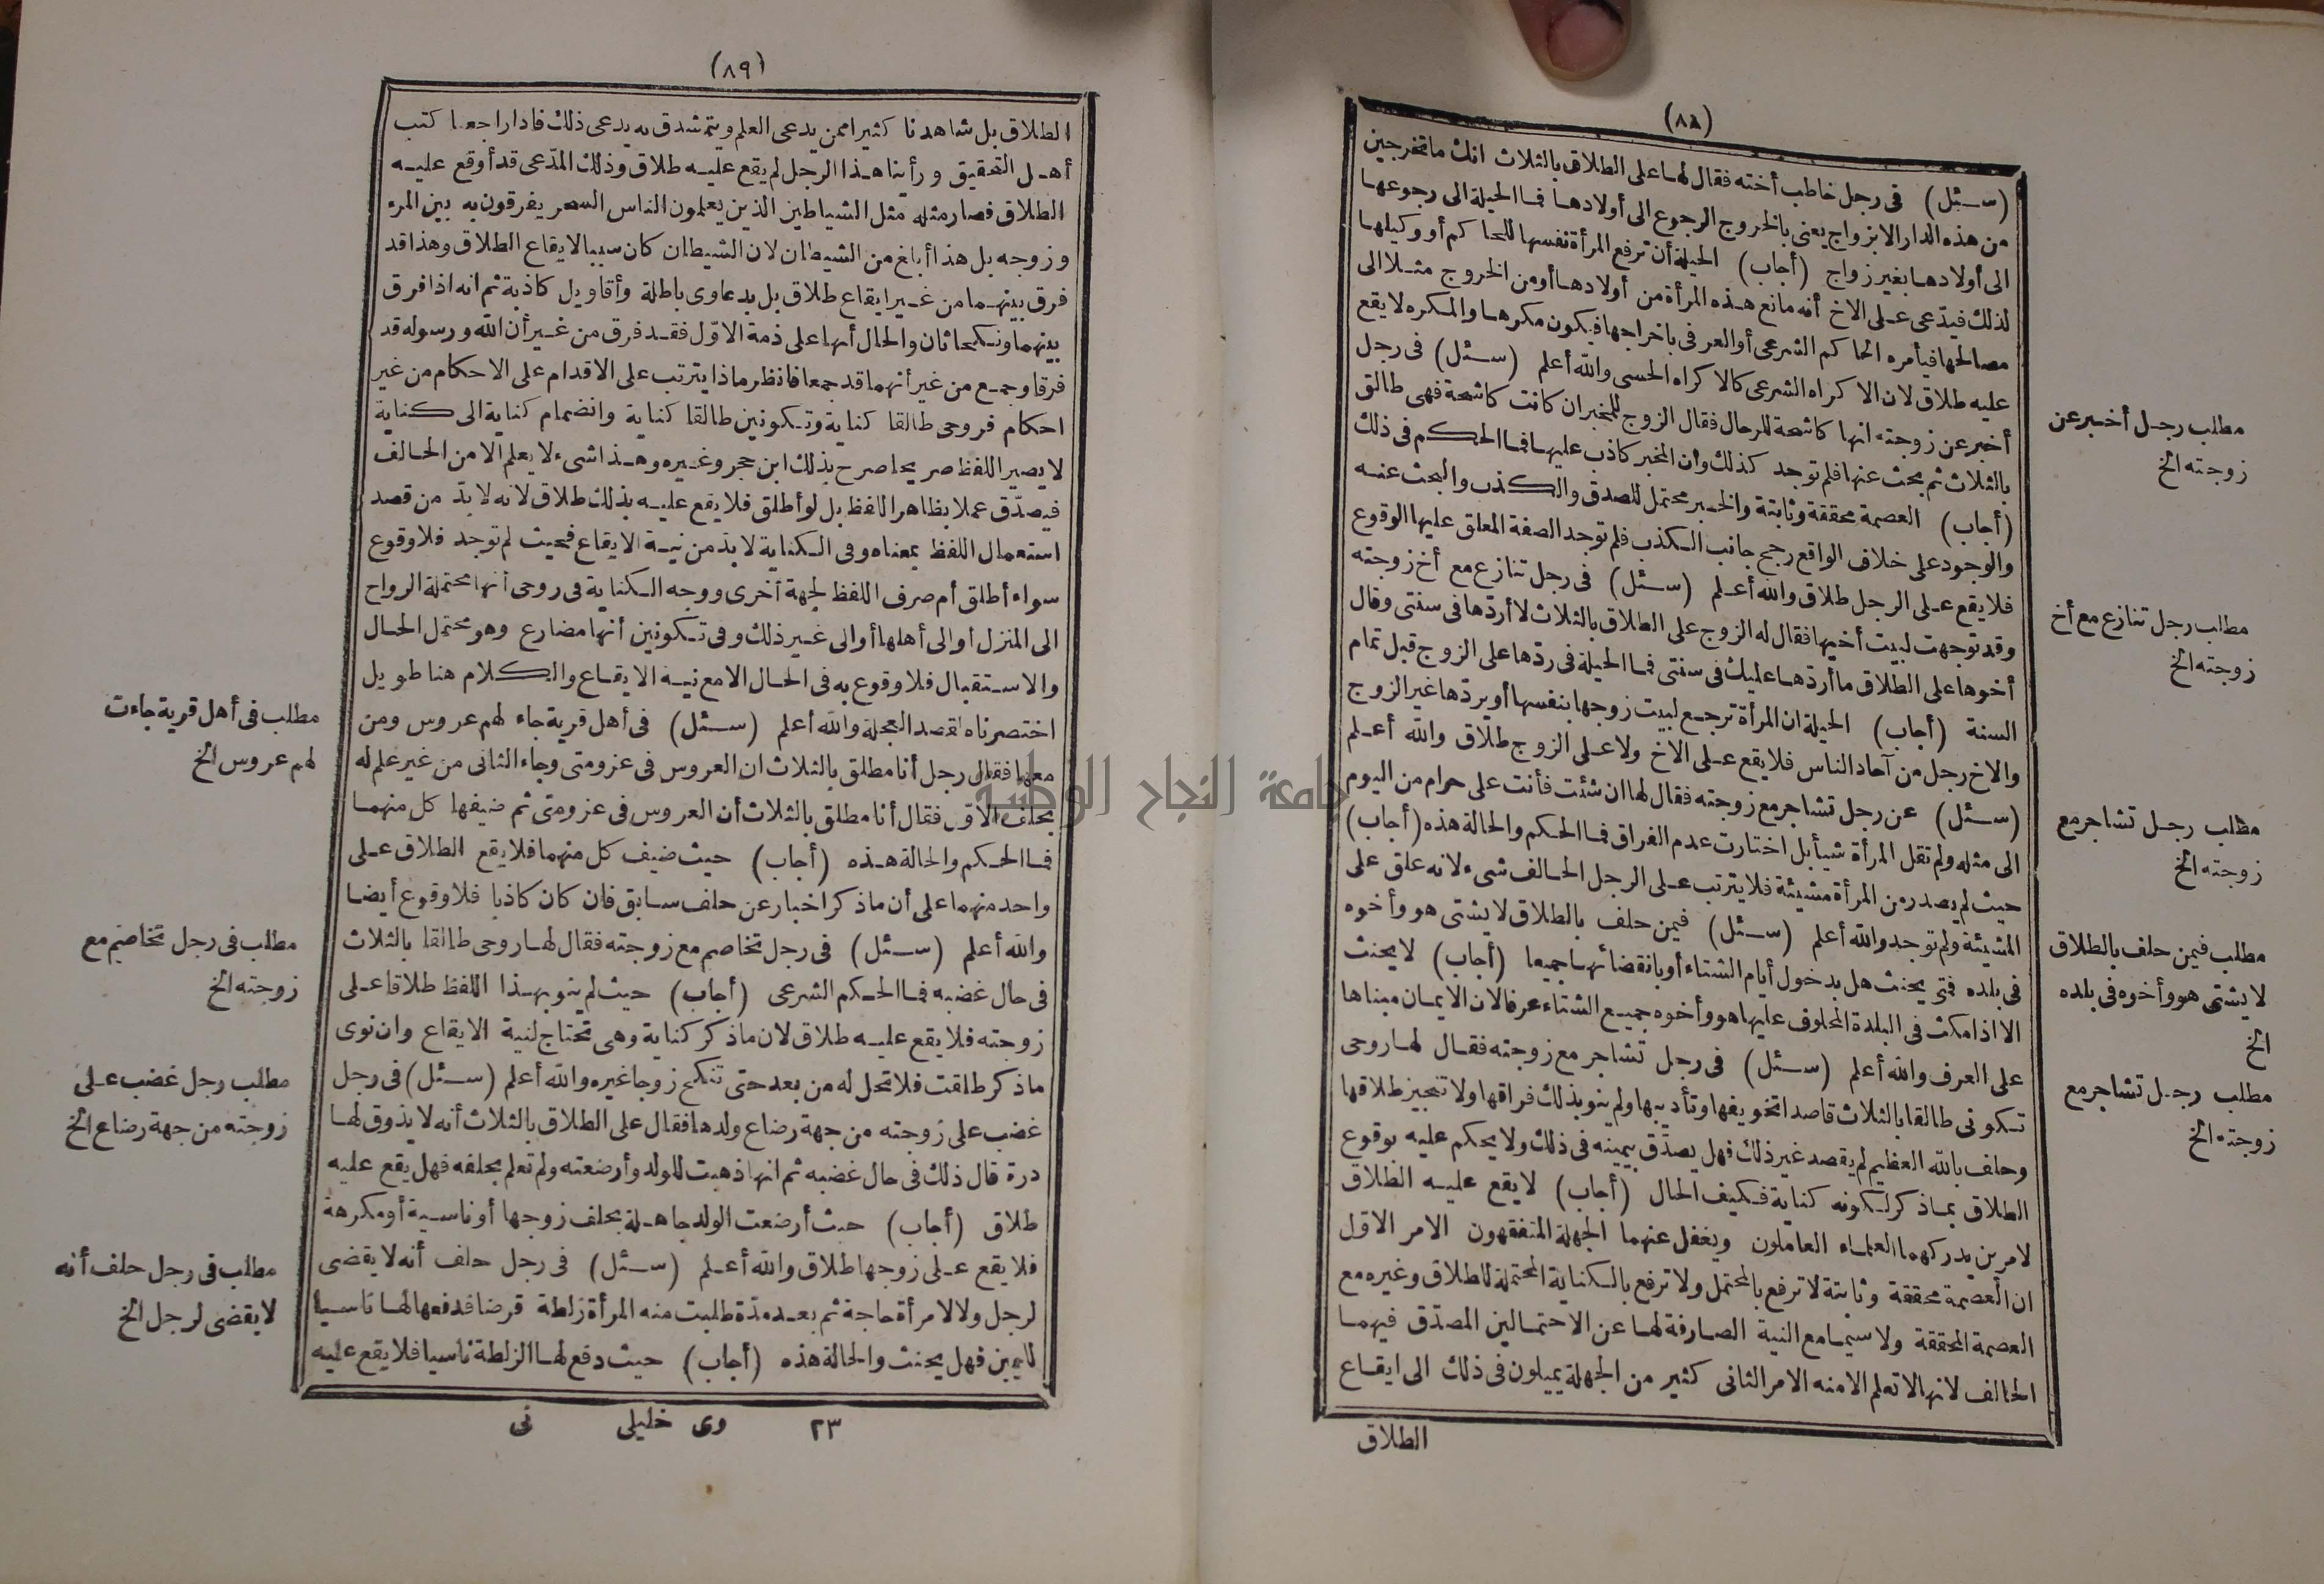 (٨٨)
(سئل) في رجل خاطب أخته فقال لها على الطلاق بالثلاث انك ما تخرجين
من هذه الدار الا بزواج يعني بالخروج الرجوع الى أولادها فما الحيلة الى رجوعها
الى أولادها بغير زواج (أجاب) الحيلة أن ترفع المرأة نفسها للحاكم أو وكيلها
لذلك فيدعى على الاخ أنه مانع هذه المرأة من أولادها أو من الخروج مثلا الى
مصالحها فيأمره الحاكم الشرعى أو العرفى باخراجها فيكون مكرها والمكره لا يقع
عليه طلاق لان الاكراه الشرعى كالاكراه الحسى والله أعلم (سئل) فى رجل
أخبر عن زوجته انها كاشحة للرجال فقال الزوج للمخبر ان كانت كاشحة فهى طالق
بالثلاث ثم بحث عنها فلم توجد كذلك وان المخبر كاذب عليها فما الحكم فى ذلك
(أجاب) العصمة محققة وثابتة والخبر محتمل للصدق والكذب والبحث عنه
والوجود على خلاف الواقع رجح جانب الكذب فلم توجد الصفة المعلق عليها الوقوع
فلا يقع على الرجل طلاق والله أعلم (سئل) فى رجل تنازع مع أخ زوجته
وقد توجهت لبيت أخيها فقال له الزوج على الطلاق بالثلاث لا أردّها فى سنتى وقال
أخوها على الطلاق ما أردها عليك فى سنتى فما الحيلة فى ردّها على الزوج قبل تمام
السنة (أجاب) الحيلة ان المرأة ترجع لبيت زوجها بنفسها أو يردّها غير الزوج
والاخ رجل من آحاد الناس فلا يقع على الاخ ولا على الزوج طلاق والله أعلم
(سئل) عن رجل تشاجر مع زوجته فقال لها ان شئت فأنت على حرام من اليوم
الى مثله ولم تقل المرأة شيأ بل اختارت عدم الفراق فما الحكم والحالة هذه (أجاب)
حيث لم يصدر من المرأة مشيئة فلا يترتب على الرجل الحالف شىء لانه علق على
المشيئة ولم توجد والله أعلم (سئل) فيمن حلف بالطلاق لا يشتى هو وأخوه
فى بلده فمتى يحنث هل بدخول أيام الشتاء أو بانقضائها جميعا (أجاب) لا يحنث
الا اذا مكث فى البلدة المحلوف عليها هو وأخوه جميع الشتاء عرفا لان الايمان مبناها
على العرف والله أعلم (سئل) فى رجل تشاجر مع زوجته فقال لها روحى
تكونى طالقا بالثلاث قاصدا تخويفها وتأديبها ولم ينو بذلك فراقها ولا تنجيز طلاقها
وحلف بالله العظيم لم يقصد غير ذلك فهل يصدّق بيمينه فى ذلك ولا يحكم عليه بوقوع
الطلاق بماذكر لكونه كناية فكيف الحال (أجاب) لا يقع عليه الطلاق
لامرين يدركهما العلماء العاملون ويغفل عنهما الجهلة المتفقهون الامر الاول
ان العصمة محققة وثابتة لا ترفع بالمحتمل ولا ترفع بالكناية المحتملة للطلاق وغيره مع
العصمة المحققة ولا سيما مع النية الصارفة لها عن الاحتمالين المصدّق فيهما
الحالف لانها لا تعلم الا منه الامر الثانى كثير من الجهلة يميلون فى ذلك الى ايقاع
الطلاق
مطلب رجل أخبر عن
زوجته الخ
مطلب رجل تنازع مع أخ
زوجته الخ
مطلب رجل تشاجر مع
زوجته الخ
مطلب فيمن حلف بالطلاق
لا يشتى هو وأخوه فى بلده
الخ
مطلب رجل تشاجر مع
زوجته الخ
(٨٩)
الطلاق بل شاهدنا كثيرا ممن يدعى العلم ويتمشدق به يدعى ذلك فاذا راجعنا كتب
أهل التحقيق ورأينا هذا الرجل لم يقع عليه طلاق وذلك المدّعى قد أوقع عليه
الطلاق فصار مثله مثل الشياطين الذين يعلمون الناس السحر يفرقون به بين المرء
وزوجه بل هذا أبلغ من الشيطان لان الشيطان كان سببا لايقاع الطلاق وهذا قد
فرق بينهما من غير ايقاع طلاق بل بدعاوى باطلة وأقاويل كاذبة ثم انه اذا فرق
بينهما ونكحها ثان والحال أنها على ذمة الاوّل فقد فرق من غير أن الله ورسوله قد
فرقا وجمع من غير أنهما قد جمعا فانظر ماذا يترتب على الاقدام على الاحكام من غير
احكام فروحى طالقا كناية وتكونين طالقا كناية وانضمام كناية الى كناية
لا يصير اللفظ صريحا صرح بذلك ابن حجر وغيره وهذا شىء لا يعلم الا من الحالف
فيصدّق عملا بظاهر اللفظ بل لو أطلق فلا يقع عليه بذلك طلاق لانه لا بدّ من قصد
استعمال اللفظ بمعناه وفى الكناية لا بدّ من نية الايقاع فحيث لم توجد فلا وقوع
سواء أطلق أم صرف اللفظ لجهة أخرى ووجه الكناية فى روحى أنها محتملة الرواح
الى المنزل أو الى أهلها أو الى غير ذلك وفى تكونين أنها مضارع وهو محتمل الحال
والاستقبال فلا وقوع به فى الحال الا مع نية الايقاع والكلام هنا طويل
اختصرناه لقصد العجلة والله أعلم (سئل) فى أهل قرية جاء لهم عروس ومن
معها فقال رجل أنا مطلق بالثلاث ان العروس فى عزومتى وجاء الثانى من غير علم له
بحلف الاوّل فقال أنا مطلق بالثلاث أن العروس فى عزومتى ثم ضيفها كل منهما
فما الحكم والحالة هذه (أجاب) حيث ضيف كل منهما فلا يقع الطلاق على
واحد منهما على أن ماذكر اخبار عن حلف سابق فان كان كاذبا فلا وقوع أيضا
والله أعلم (سئل) فى رجل تخاصم مع زوجته فقال لها روحى طالقا بالثلاث
فى حال غضبه فما الحكم الشرعى (أجاب) حيث لم ينو بهذا اللفظ طلاقا على
زوجته فلا يقع عليه طلاق لان ماذكر كناية وهى تحتاج لنية الايقاع وان نوى
ماذكر طلقت فلا تحل له من بعد حتى تنكح زوجا غيره والله أعلم (سئل) فى رجل
غضب على زوجته من جهة رضاع ولدها فقال على الطلاق بالثلاث أنه لا يذوق لها
درة قال ذلك فى حال غضبه ثم انها ذهبت للولد وأرضعته ولم تعلم بحلفه فهل يقع عليه
طلاق (أجاب) حيث أرضعت الولد جاهلة بحلف زوجها أو ناسية أو مكرهة
فلا يقع على زوجها طلاق والله أعلم (سئل) فى رجل حلف أنه لا يقضى
لرجل ولا لامرأة حاجة ثم بعد مدّة طلبت منه المرأة زلطة قرضا فدفعها لها ناسيا
لليمين فهل يحنث والحالة هذه (أجاب) حيث دفع لها الزلطة ناسيا فلا يقع عليه
٢٣ وى خليلى نى
مطلب فى أهل قرية جاءت
لهم عروس الخ
مطلب فى رجل تخاصم مع
زوجته الخ
مطلب رجل غضب على
زوجته من جهة رضاع الخ
مطلب فى رجل حلف أنه
لا يقضى لرجل الخ
جامعة النجاح الوطنية